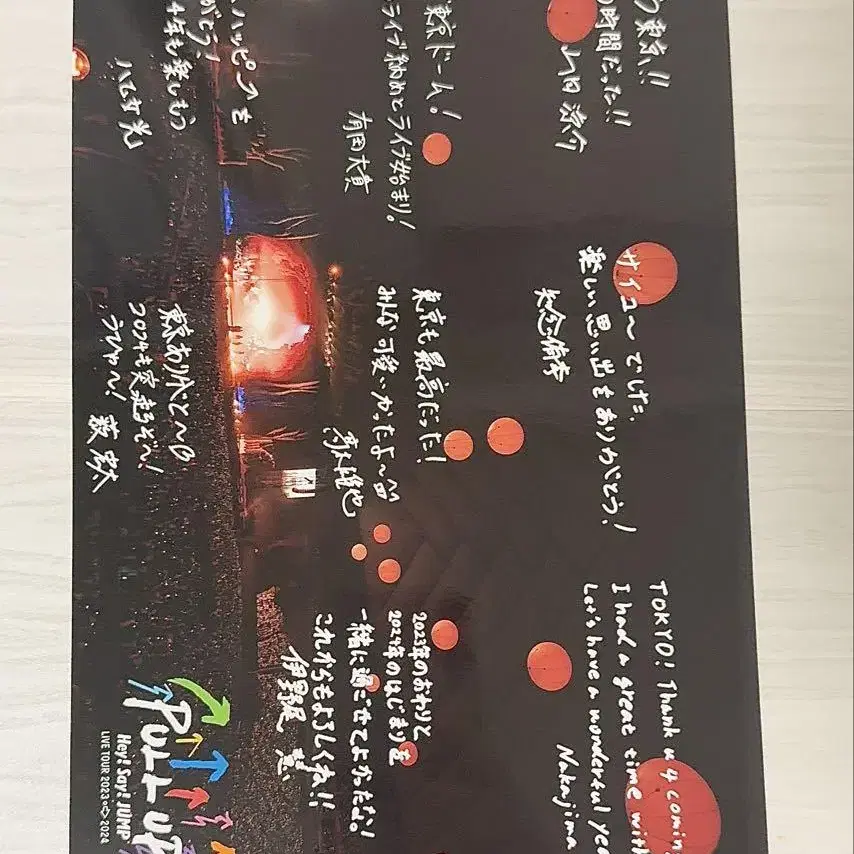 東京!!
の時間だった!!
山田涼介
サイコ〜でした。
楽しい思い出をありがとう!
知念侑李
TOKYO! Thank u 4 coming
I had a great time with
Let's have a wonderful
Nakajima
東京ドーム!
ライブ納めとライブ始まり!
有岡大貴
東京も最高だった!
みんな可愛いかったよ〜
髙木雄也
2023年のおわりと
2024年のはじまりを
一緒に過ごせてよかったな!
これからもよろしくね!!
伊野尾 慧
ハッピーを
がとう
4年も楽しもう
八乙女光
東京ありがと〜
2024も突走るぞ〜!
薮 宏太
PULL UP
Hey! Say! JUMP
LIVE TOUR 2023 2024